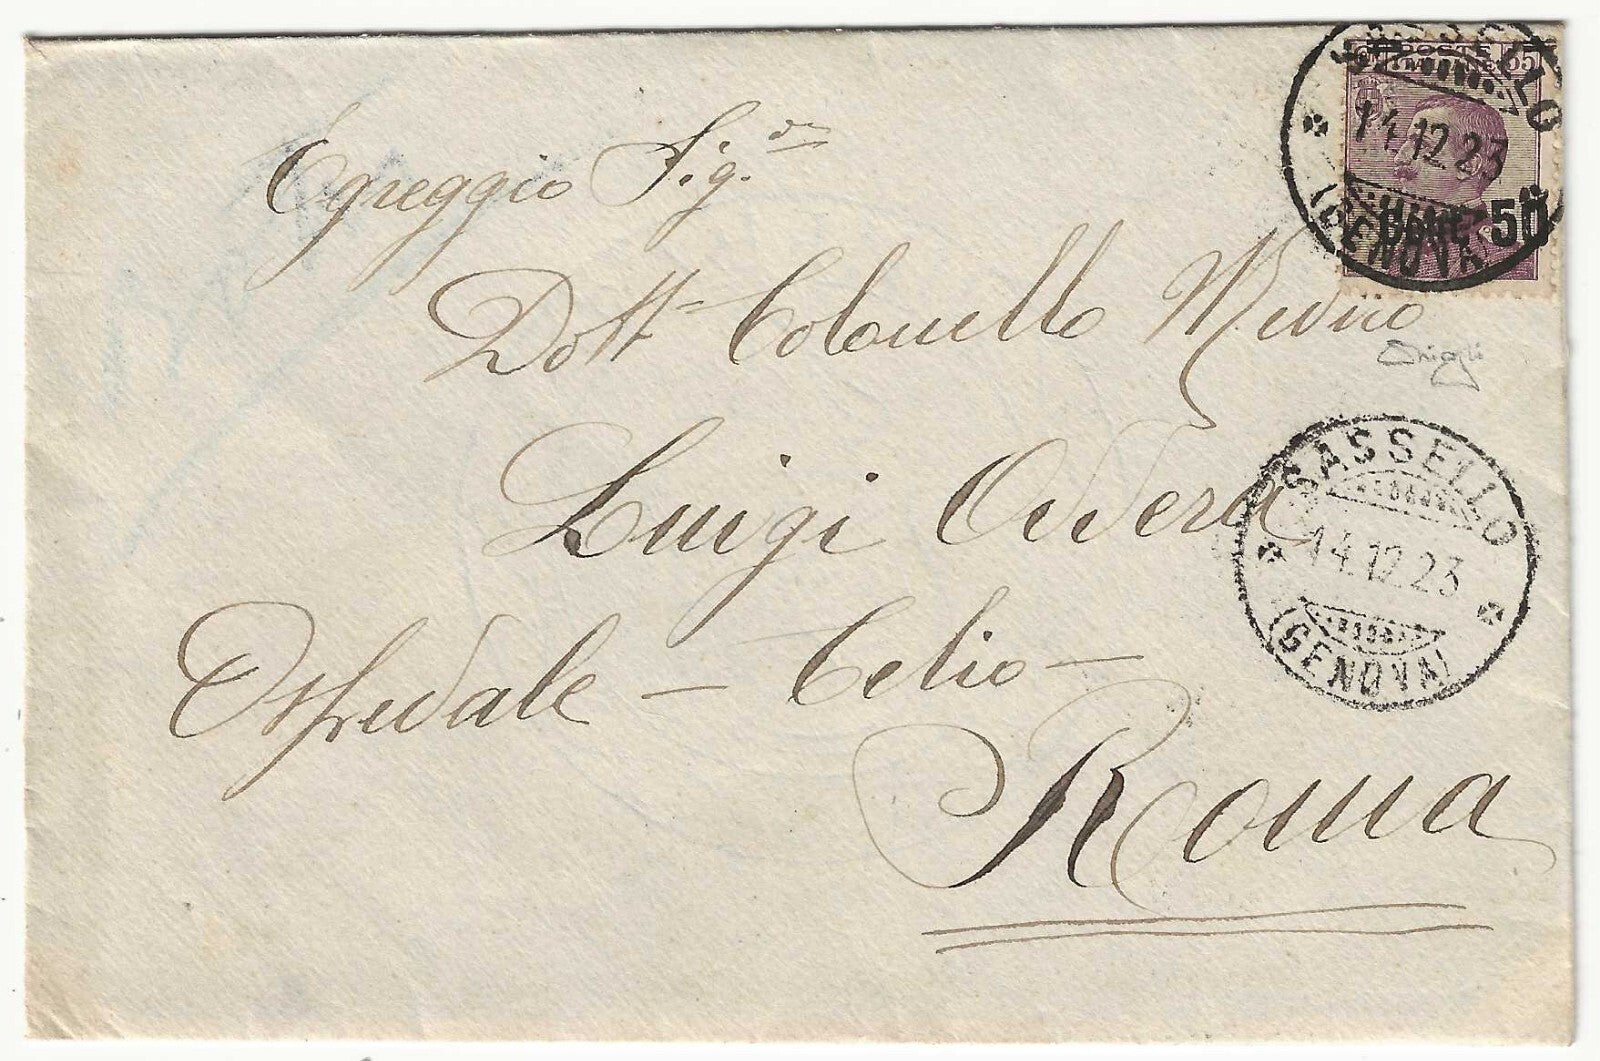 SASSELLO
POSTE
55
14.12.23
Cent. 50
(GENOVA)
Egregio Sig.or
Dott. Colonello Medico
Luigi Oddera
SASSELLO
14.12.23
(GENOVA)
Ospedale - Celio -
Roma